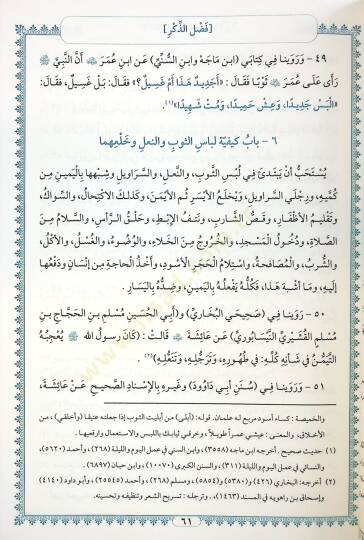 [فَضْل الذِّكْر]
٤٩ - وَرَوَينا فِي كِتابَي (ابن مَاجَهْ وابنِ السُّنِّيِّ) عَن ابنِ عُمَرَ ﵁ أنَّ النَّبِيَّ ﷺ
رَأى عَلَى عُمَرَ ﵁ ثَوْبًا فَقَالَ: «أجَدِيدٌ هَذَا أمْ غَسِيلٌ؟» فقالَ: بَلْ غَسِيلٌ، فقالَ:
«الْبَسْ جَدِيدًا، وَعِشْ حَمِيدًا، وَمُتْ شَهِيدًا»(١).
٦ - بابُ كيفيّة لباسِ الثوبِ والنعلِ وخَلْعِهما
يُسْتَحَبُّ أنْ يَبْتَدئَ فِي لُبْسِ الثَّوبِ، والنَّعْلِ، والسَّراويلِ وشِبْهِها بِاليَمينِ مِن
كُمَّيهِ، ورِجْلَي السَّراويلِ، وَيَخْلَعُ الأيْسَر ثُم الأيْمَنَ، وكَذلكَ الاكتِحالُ، والسِّواكُ،
وَتَقْليمُ الأظْفارِ، وَقَصُّ الشّارِبِ، ونَتفُ الإبْطِ، وحَلْقُ الرَّأسِ، والسَّلامُ مِنَ
الصَّلاةِ، ودُخُولُ المَسْجدِ، والخُروجُ مِنَ الخَلاءِ، والوُضُوءُ، والغُسْلُ، والأكْلُ،
والشُّربُ، والمُصَافحةُ، واسْتِلامُ الحَجَرِ الأسْوَدِ، وأخْذُ الحاجةِ مِن إنْسانٍ ودَفْعُها
إليهِ، ومَا أشْبَهَ هَذا، فَكُلُّهُ يَفْعَلُهُ بِاليَمينِ، وضِدُّهُ بِاليَسَارِ.
٥٠ - وَرَوَينا فِي (صَحِيحَي البُخَاريِّ) و(أبِي الحُسَينِ مُسْلمِ بنِ الحَجَّاجِ بنِ
مُسْلمٍ القُشَيْريِّ النَّيْسابُوريِّ) عَن عَائِشَةَ ﵂ قالَتْ: (كَانَ رَسُولُ الله ﷺ يُعْجِبُهُ
التَّيَمُّنُ فِي شَأنِهِ كُلِّهِ: فِي طُهُورِهِ، وتَرَجُّلِهِ، وَتَنَعُّلِهِ)(٢).
٥١ - وَرَوَينا فِي (سُنَنِ أبِي دَاوُودَ) وغَيرِهِ بِالإسْنادِ الصَّحيحِ عَنْ عَائِشَةَ،
والخميصة: كساء أسود مربع له علمان. قوله: (أبلي) من أبليت الثوب إذا جعلته عتيقا و(أخلقي)، من
الأخلاق، والمعنى: عيشي عمراً طويلاً، وخرقي ثيابك باللبس والاستعمال وارقعيها.
(١) حديث صحيح. أخرجه ابن ماجه (٣٥٥٨)، وابن السني في عمل اليوم والليلة (٢٦٨)، وأحمد (٥٦٢٠)،
والنسائي في عمل اليوم والليلة (٣١١)، والسنن الكبرى (١٠٠٧٠)، وابن حبان (٦٨٩٧).
(٢) أخرجه: البخاري (٤٢٦) و(٥٣٨٠) و(٥٨٥٤)، ومسلم (٢٦٨)، وأحمد (٢٥٥٤٥)، وأبو داود (٤١٤٠)
وإسحاق بن راهويه في المسند (١٤٦٣). وترجله: تسريح الشعر وتنظيفه وتحسينه.
٦١